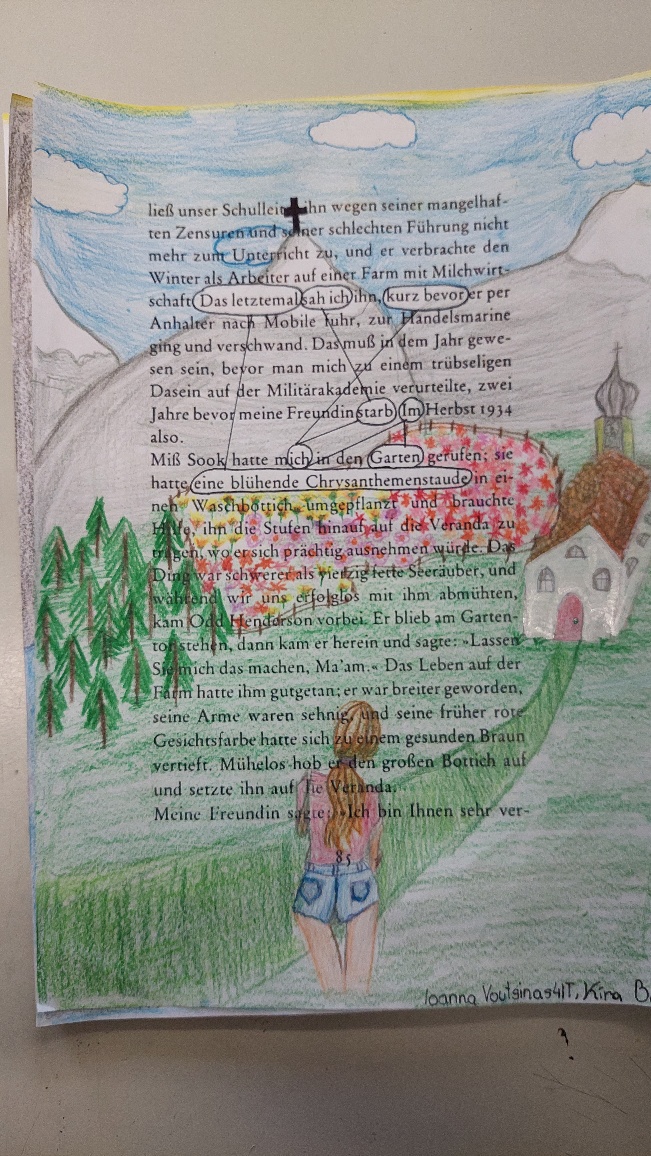 ließ unser Schulleiter ihn wegen seiner mangelhaf-
ten Zensuren und seiner schlechten Führung nicht
mehr zum Unterricht zu, und er verbrachte den
Winter als Arbeiter auf einer Farm mit Milchwirt-
schaft. Das letztemal sah ich ihn, kurz bevor er per
Anhalter nach Mobile fuhr, zur Handelsmarine
ging und verschwand. Das muß in dem Jahr gewe-
sen sein, bevor man mich zu einem trübseligen
Dasein auf der Militärakademie verurteilte, zwei
Jahre bevor meine Freundin starb. Im Herbst 1934
also.
Miß Sook hatte mich in den Garten gerufen; sie
hatte eine blühende Chrysanthemenstaude in ei-
nen Waschbottich umgepflanzt und brauchte
Hilfe, ihn die Stufen hinauf auf die Veranda zu
tragen, wo er sich prächtig ausnehmen würde. Das
Ding war schwerer als vierzig fette Seeräuber, und
während wir uns erfolglos mit ihm abmühten,
kam Odd Henderson vorbei. Er blieb am Garten-
tor stehen, dann kam er herein und sagte: »Lassen
Sie mich das machen, Ma'am.« Das Leben auf der
Farm hatte ihm gutgetan; er war breiter geworden,
seine Arme waren sehnig, und seine früher rote
Gesichtsfarbe hatte sich zu einem gesunden Braun
vertieft. Mühelos hob er den großen Bottich auf
und setzte ihn auf die Veranda.
Meine Freundin sagte: »Ich bin Ihnen sehr ver-
85
Ioanna Voutsinas 4IT, Kira B.